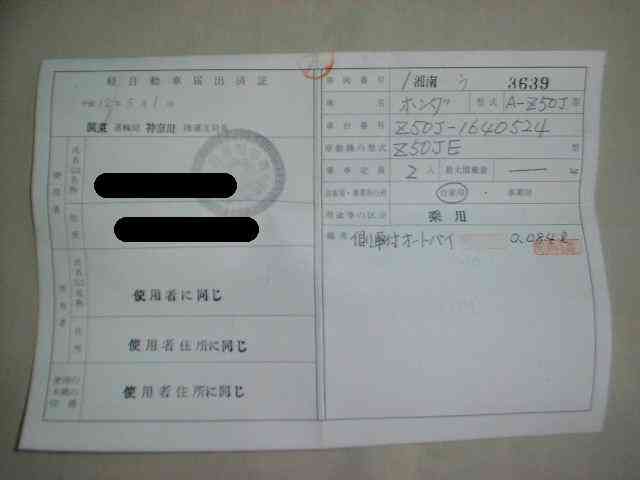 軽自動車届出済証
平成12年5月1日
関東 運輸局 神奈川 陸運支局長
使用者
氏名又は名称
住所
所有者
氏名又は名称
使用者に同じ
住所
使用者住所に同じ
使用の本拠の位置
使用者住所に同じ
車両番号 1湘南 う 3639
車名 ホンダ 型式 A-Z50J 型
車台番号 Z50J-1640524
原動機の型式 Z50JE 型
乗車定員 2人 最大積載量 — K
自家用・事業用の別 自家用 ・ 事業用
用途等の区分 乗用
備考 側車付オートバイ 0.084ℓ